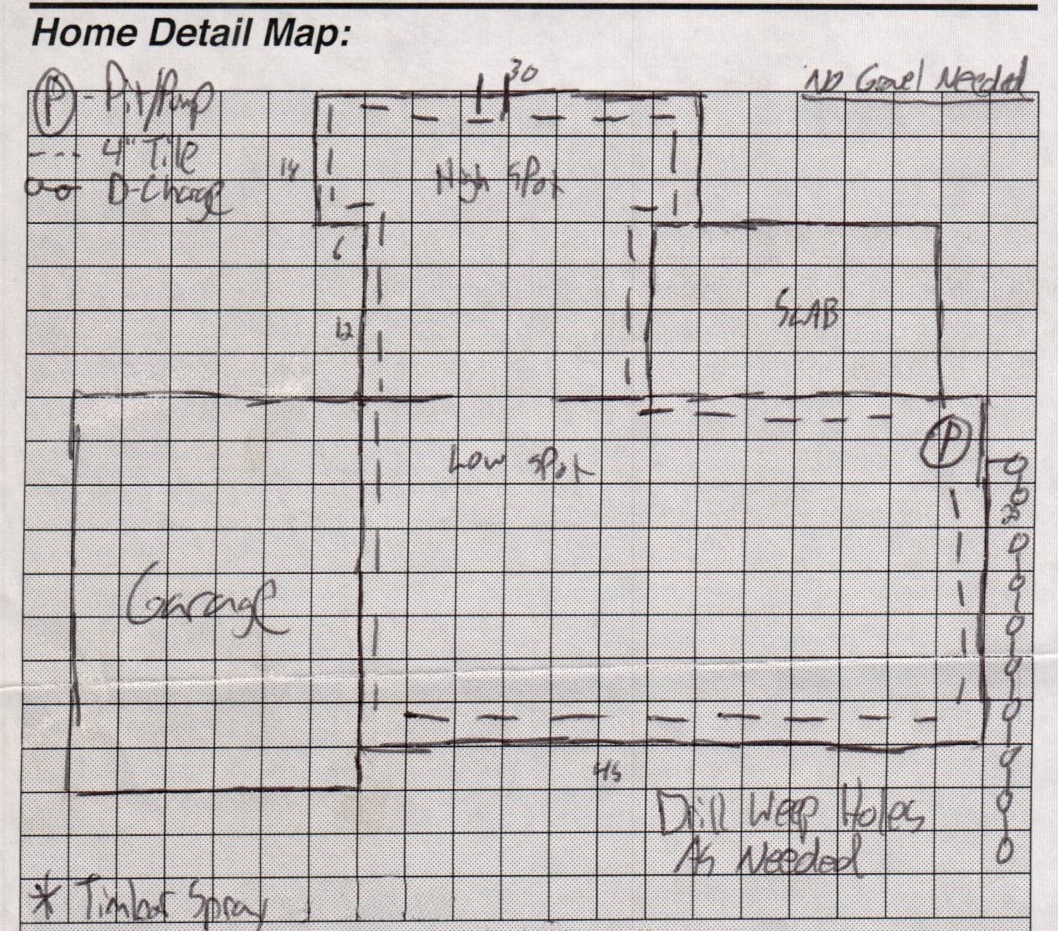 Home Detail Map:
30
No Gravel Needed
P - Pit/Pump
--- 4" Tile
D-Charge
14
High Spot
6
12
SLAB
P
Low Spot
Garage
45
Drill Weep Holes
As Needed
* Timbor Spray